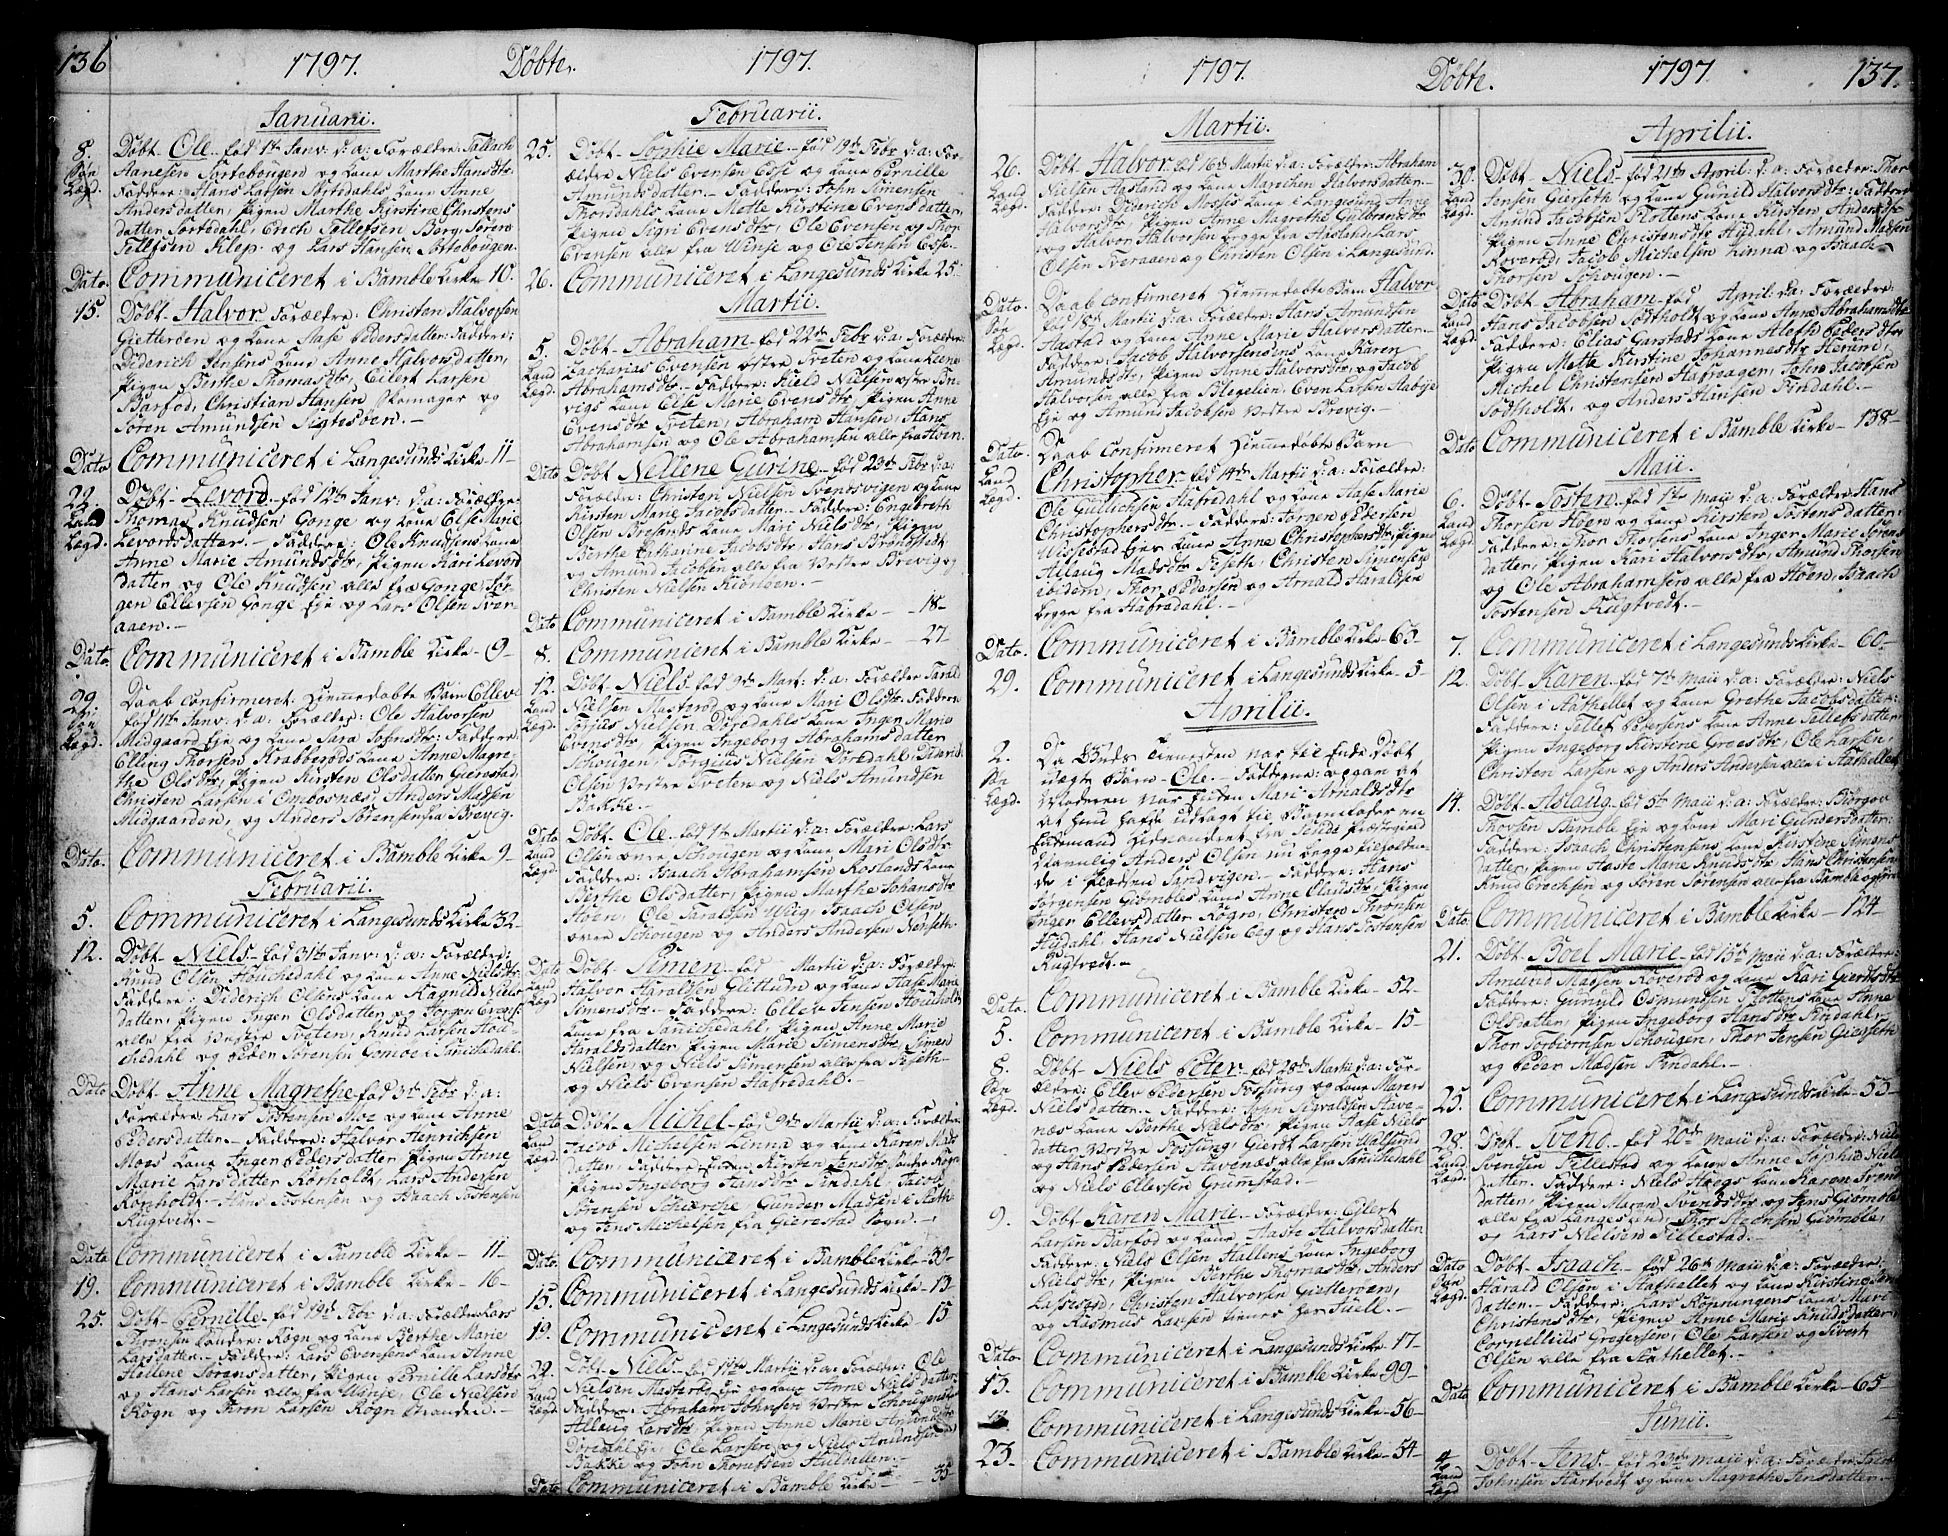 136
1797. Döbte. 1797.
Januarii.
8. Döbt Ole fød 1te Janv: d: a: Forældre: Tallach
Søn Hanesen Sortebougen og kone Marthe Hansdtr
Lægd. Faddere: Hans Larsen Sortedahls kone Anne
Andersdatter, Pigen Marthe Kirstine Christens
datter Sortedal, Erich Tellefsen Borg, Sören
Tellefsen Klep og Lars Hansen Sortebougen.
Dato. Communiceret i Bamble Kirke 10.
15. Döbt Halvor Forældre: Christen Halvorsen
Gietteröen og kone Aase Pedersdatter Faddere:
Diderich Jensens kone Anne Halvorsdatter,
Pigen Berthe Thomasdtr, Eilert Larsen
Barfod, Christian Hansen Skomager og
Sören Amundsen Sigtesöen.
Dato Communiceret i Langesunds Kirke 11
22. Döbt Levord fød 12te Janv: d: a: Forældre:
Land Thomas Knudsen Gonge og kone Else Marie
Lægd. Levordsdatter. Faddere: Ole Knudsens kone
Anne Marie Amundsdtr, Pigen Kari Levord
datter og Ole Knudsen alle fra Gonge, Jör-
gen Ellevsen Gonge Eje og Lars Olsen Tver-
aaen.
Dato Communiceret i Bamble Kirke 9
29. Daab confirmeret Hiemedøbte Barn Ellev
Søn fød 11te Janv: d: a: Forældre: Ole Halvorsen
Lægd. Midgaard Eje og kone Sara Johnsdtr: Faddere:
Elling Thorsen Krabberøds kone Anne Magre-
the Olsdtr, Pigen Kirsten Olsdatter Gierestad,
Christen Larsen i Ombosnæs, Anders Madsen
Midgaarden, og Anders Sörensen fra Brevig.
Dato. Communiceret i Bamble Kirke 9
Februarii.
5. Communiceret i Langesunds Kirke 32
12. Döbt Niels fød 31te Janv: d: a: Forældre:
Knud Olsen Houchedahl og kone Anne Nielsdtr:
Faddere: Diderich Olsens kone Ragnild Niels
datter, Pigen Inger Olsdatter og Jørgen
alle fra Vestre Tveten, Knud Larsen Hou-
chedahl og Peder Sörensen Gomoe i Sanichedahl.
Dato Döbt Anne Magrethe fød 3te Febr d: a:
Forældre: Lars Tostensen Moe og kone Anne
Pedersdatter. Faddere: Halvor Henrichsen
Moes kone Inger Pedersdatter Pigen Anne
Marie Larsdatter Rörholdt, Lars Andersen
Rörholdt. Hans Tostensen og Isaach Tostensen
Rugtvet.
Dato Communiceret i Bamble Kirke 11
19. Communiceret i Bamble Kirke 16
25. Döbt Pernille fød 19de Febr d: a: Forældre Lars
Thronsen Rögn og kone Berthe Marie
Larsdatter. Faddere: Lars Evensens kone Anne
Hellene Joransdatter, Pigen Pernille Larsdtr
og Hans Larsen alle fra Winje, Ole Nielsen
Rögn og Thron Larsen Rögn Stranden.
Februarii.
25. Döbt Sophie Marie fød 19de Febr d: a: For-
ældre Niels Evensen Esse og kone Pernille
Amundsdatter. Faddere: John Simensen
Thorsdahls kone Mette Kirstine Evensdatter,
Pigen Sigri Evensdtr, Ole Evensen og Thor
Evensen alle fra Winje og Ole Jensen Esse.
26. Communiceret i Langesunds Kirke 25
Martii.
5. Döbt Abraham fød 22de Febr d: a: Forældre
Land Zacharias Evensen østre Tveten og kone Lene
Lægd. Abrahamsdtr. Faddere: Kield Nielsen østre
vigs kone Else Marie Evensdtr, Pigen Anne
Evensdtr Tveten, Abraham Hansen, Hans
Abrahamsen og Ole Abrahamsen alle fra Hoen.
Dato Döbt Nellene Gurine fød 23de Febr d: a:
Forældre: Christen Nielsen Svendsvigen og kone
Kirsten Marie Jacobsdatter. Faddere: Engebreth
Olsen Bresands kone Mari Nielsdtr, Pigen
Berthe Catharine Jacobsdtr, Hans Brönstedt
og Amund Jacobsen alle fra Vestre Brevig og
Christen Nielsen Kiönöen.
Dato Communiceret i Bamble Kirke 18
8. Communiceret i Bamble Kirke 27
12. Döbt Niels fød 9de Mart: d: a: Forældre Tarald
Land Nielsen Masterød og kone Mari Olsdtr. Faddere:
Lægd. Torjus Nielsen Dördahls kone Ingen Marie
Evensdtr, Pigen Ingeborg Abrahamsdatter
Schougen, Torgius Nielsen Dördahl, David
Olsen Vestre Tveten og Niels Amundsen
Bakke.
Dato Döbt Ole fød 1te Martii d: a: Forældre: Lars
Land Olsen øvre Schougen og kone Mari Olsdtr
Lægd. Faddere: Isaach Abrahamsen Roslands kone
Berthe Olsdatter, Pigen Marthe Johansdtr
Hoen, Ole Taraldsen Ueig, Isaach Olsen
øvre Schougen og Anders Andersen Henseth.
Dato Döbt Simen fød Martii d: a: Forældre:
Land Halvor Haraldsen Gletludre og kone Hase Marie
Lægd Simensdtr. Faddere: Ellev Jensen Houcholdt
kone fra Sanichedahl, Pigen Anne Marie
Haraldsdatter, Pigen Marie Simensdtr, Simen
Nielsen, og Niels Simensen alle fra Feseth
og Niels Evensen Hafredahl.
Dato Döbt Michel fød 9de Martii d: a: Forældre:
Land Jacob Michelsen Linna og kone Karen Mads
Lægd. datter. Faddere Enken Kirsten Jensdtr Söndre Rögn
Pigen Ingeborg Hansdtr Findahl, Jacob
Sörensen Schierche, Gunder Madsen i Aeste
og Jens Michelsen fra Gierestad Sogn.
Dato. Communiceret i Bamble Kirke 39
15. Communiceret i Langesunds Kirke 13
19. Communiceret i Langesunds Kirke 15
22. Döbt Niels fød 17de Martii d: a: Forældre: Ole
Land Nielsen Masterød Eje og kone Anne Nielsdatter.
Lægd Faddere: Abraham Johnsen Vestre Schougens kone
Allaug Larsdtr Pigen Anne Marie Amundsdtr
Dördahl Eje, Ole Larsen og Niels Amundsen
Bakke og John Thorersen Huldalen.
Dato Communiceret i Bamble Kirke 35
1797. Döbte. 1797. 137.
Martii.
26. Döbt Halvor fød 16de Martii d: a: Forældre Abraham
Land Nielsen Aasland og kone Marichen Halvorsdatter.
Lægd. Faddere: Diderich Mosses kone i Langesund Anne
Halvorsdtr, Pigen Anne Magrethe Gulbrandsdtr
og Halvor Halvorsen begge fra Aasland, Lars
Olsen Tveraaen og Christen Olsen i Langesund.
Dato. Daab confirmeret Hiemmedøbte Barn Halvor
Søn fød 18de Martii d: a: Forældre: Hans Amundsen
Lægd. Aastad og kone Anne Marie Halvorsdatter.
Faddere: Jacob Halvorsens kone Karen
Amundsdtr, Pigen Anne Halvorsdtr og Jacob
Halvorsen alle fra Blegelien, Even Larsen Aaby
Eje og Amund Jacobsen Vestre Brevig.
Dato. Daab confirmeret Hiemmedøbte Barn
Land Christopher fød 14de Martii d: a: Forældre:
Lægd. Ole Gullichsen Hafredahl og kone Aase Marie
Christophersdtr. Faddere: Jörgen Pedersen
Wissestad Ejes kone Anne Christophersdtr, Pigen
Allaug Madsdtr Feseth, Christen Simensen
Eidern, Thor Pedersen og Arnold Haraldsen
begge fra Hafredahl.
Dato. Communiceret i Bamble Kirke 65
29. Communiceret i Langesunds Kirke 5
Aprilii.
2. Da Guds Tienesten var til Ende Döbt
Søn uægte Barn Ole. Faddere: opgav at
Lægd. Moderen var Enken Mari Arnoldsdtr
at hun hafde udlagt til Barnefader en
Enkemand fra Præstegield
navnlig Anders Olsen nu begge tilholden-
de i Pladsen Sandvigen. Faddere: Hans
Jörgensen Giömbles kone Anne Clausdtr, Pigen
Inger Ellevsdatter Rögn, Christen Thronsen
Hydahl, Hans Nielsen Eeg og Hans Tostensen
Rugtvedt.
Dato. Communiceret i Bamble Kirke 52
5. Communiceret i Bamble Kirke 15
8. Döbt Niels Peter fød 28de Martii d: a: For-
Søn ældre: Ellev Pedersen Fossung og kone Maren
Lægd. Nielsdatter. Faddere: John Sigvaldsen Have-
næs kone Berthe Nielsdtr, Pigen Aase Niels
datter Vestre Fossung, Gierdt Larsen Walsund
og Hans Pedersen Aavenæs alle fra Sanichedahl
og Niels Ellevsen Grumstad.
9. Döbt Karen Marie. Forældre: Eilert
Larsen Barfod og kone Aaste Halvorsdatter
Faddere: Niels Olsen Hallens kone Ingeborg
Nielsdtr, Pigen Berthe Thomasdtr, Anders
Lassesøn, Christen Halvorsen Gietteröen,
og Rasmus Larsen tiener Hr: Juell.
Dato. Communiceret i Langesunds Kirke 17
13. Communiceret i Bamble Kirke 99
Communiceret i Langesunds Kirke 56
23. Communiceret i Bamble Kirke 54
Aprilii.
30. Döbt Niels fød 21te April: d: a: Forældre: Thor
Land Jensen Gierseth og kone Gunild Halvorsdtr Faddere
Lægd. Amund Jacobsen Plottens kone Kirsten Andersdtr
Pigen Anne Christensdtr Hydahl, Amund Madsen
Roverød, Jacob Michelsen Linna og Isaach
Thorsen Schougen.
Dato Döbt Abraham fød April: d: a: Forældre:
Land Hans Jacobsen Södtholdt og kone Anne Abrahamsdtr
Lægd. Faddere: Elias Garstads kone Aleth Pedersdtr
Pigen Mette Kirstine Johannesdtr Herum,
Michel Christensen Hafsvagen, John Jacobsen
Södtholdt, og Anders Hansen Findahl.
Dato Communiceret i Bamble Kirke 138
Maii.
6. Döbt Tosten fød 1te Maii d: a: Forældre Hans
Land Thorsen Hoen og kone Kirsten Tostensdatter.
Lægd Faddere: Thor Thorsens kone Inger Marie Sörens
datter, Pigen Kari Halvorsdtr, Amund Thorsen
og Ole Abrahamsen alle fra Hoen, Isaach
Tostensen Rugtvedt.
7. Communiceret i Langesunds Kirke 60
12. Döbt Karen fød 7de Maii d: a: Forældre: Niels
Olsen i Stathellet og kone Grethe Jacobsdatter
Faddere: Tellef Pedersens kone Anne Tellefsdatter
Pigen Ingeborg Kirstine Groesdtr, Ole Larsen,
Christen Larsen og Anders Andersen alle i Stathellet.
14. Döbt Aslaug fød 5te Maii d: a: Forældre: Biörgov
Thorsen Bamble Eje og kone Mari Gundersdatter:
Faddere: Isaach Christensens kone Kirstine Simens
datter, Pigen Haste Marie Knudsdtr, Hans Christensen
Knud Erechsen og Sören Sörensen alle fra Bamble
Dato. Communiceret i Bamble Kirke 124
21. Döbt Boel Marie fød 15de Maii d: a: Forældre:
Amund Madsen Roverød og kone Kari Gierdsdtr
Faddere: Gunuld Osmundsen Plottens kone Anne
Olsdatter, Pigen Ingeborg Hansdtr Findahl,
Thor Torbiörnsen Schougen, Thor Jensen Gierseth
og Peder Madsen Findahl.
25. Communiceret i Langesunds Kirke 53
28. Döbt Svend fød 20de Maii d: a: Forældre: Niels
Land Svendsen Tillestad og kone Anne Sophie Niels
Lægd. datter. Faddere: Niels Høegs kone Karen Svends
datter, Pigen Maren Svendsdtr og Jens Giömble
alle fra Langesund, Thor Giömble,
og Lars Nielsen Tillestad.
Dato Döbt Isaach fød 26de Maii d: a: Forældre:
Søn Harald Olsen i Stathellet og kone Kirstine Jens
Lægd. datter. Faddere: Lars Röpningens kone Mari
Christensdtr, Pigen Anne Marie Knudsdatter,
Cornellius Gregersen, Ole Larsen og Sivert
Olsen alle fra Stathellet.
Dato Communiceret i Bamble Kirke 65
Junii.
4. Döbt Jens fød 23de Maii d: a: Forældre Jacob
Land Johnsen Hartvedt og kone Magrethe Jensdatter.
Lægd